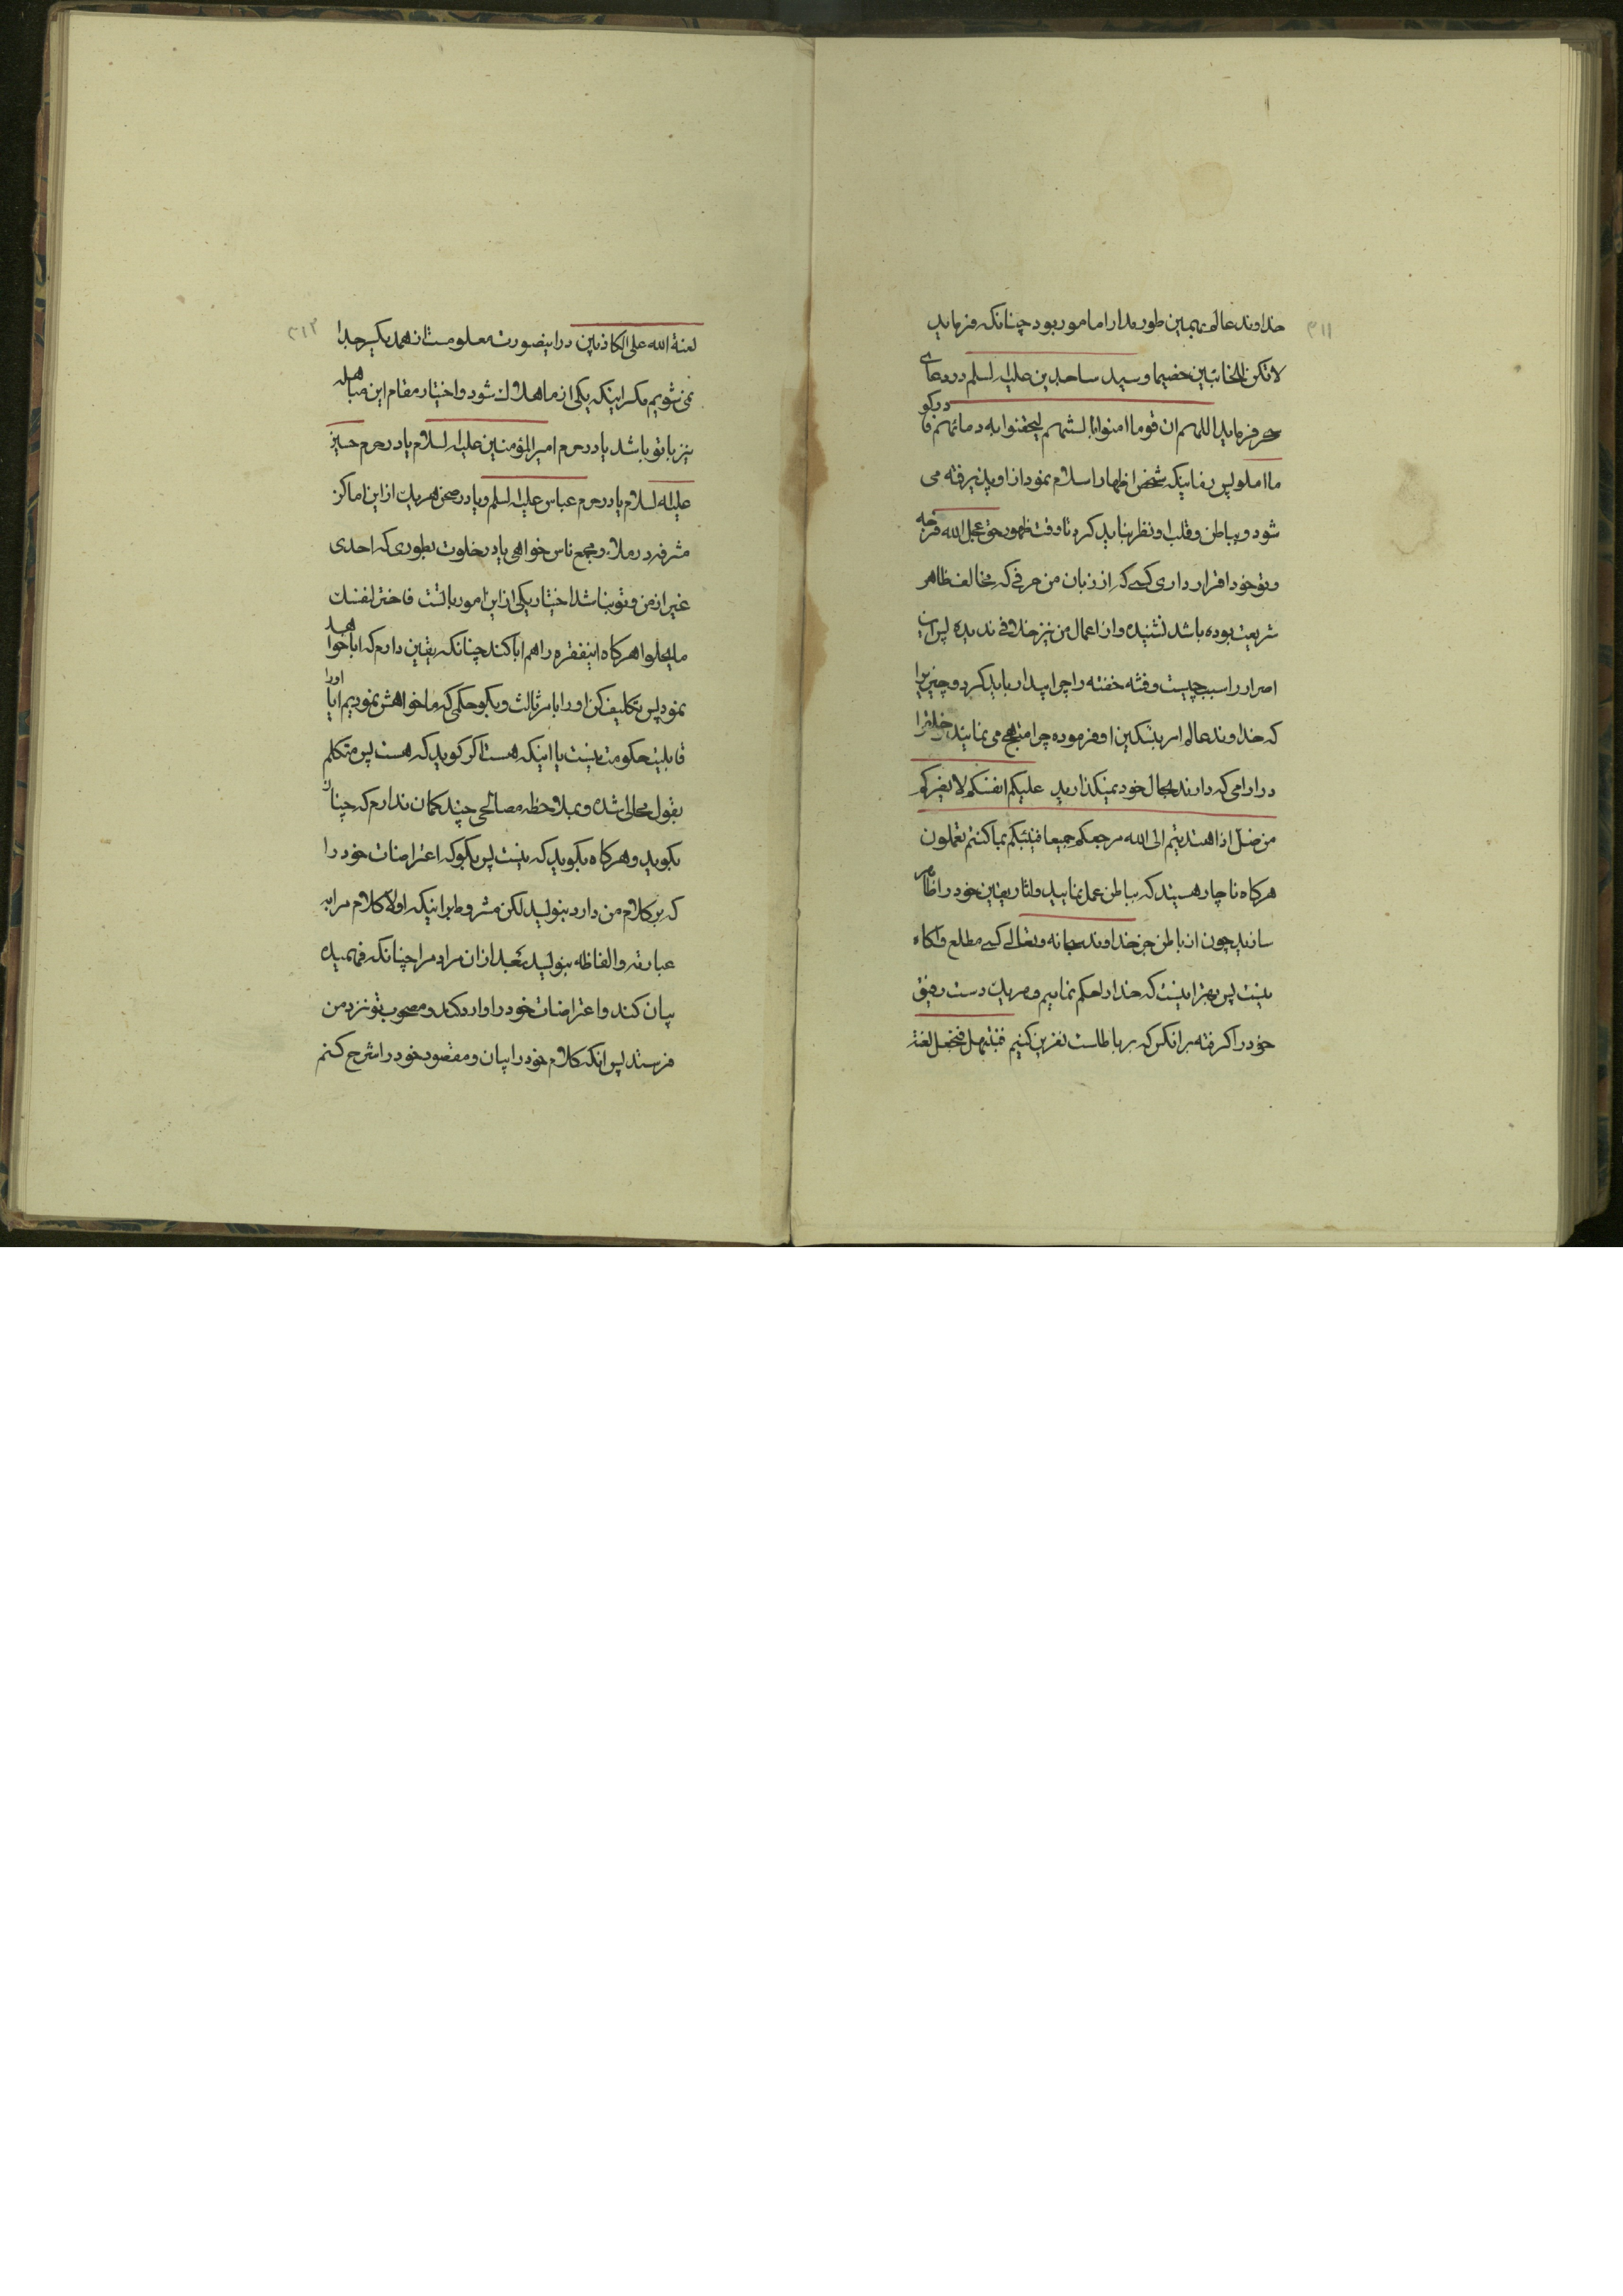 ۳۱۱
خداوند عالم بهمین طور مدارا مامور بود چنانکه میفرماید
لاتکن للخائنین خصیما و سید ساجدین علیه السلم در دعای
میفرماید اللهم ان قوما امنوا بالسنتهم لیحقنوا به دمائهم فادرکوا
ما املوا پس همینکه شخص اظهار اسلام نمود از او پذیرفته می
شود و بباطن و قلب او نظر نباید کرد تا وقت ظهور حق عجل الله فرجه
و تو خود اقرار داری کسی که از زبان من حرفی که مخالف ظاهر
شریعت بوده باشد نشنیده و از اعمال من نیز خلافی ندیده پس این
اصرار را سبب چیست و فتنه خفته را چرا بیدار باید کرد و چیزیرا
که خداوند عالم امر بتسکین او فرموده چرا مهیج می نمایند خلق را
در ارامی که دارند بحال خود نمیگذارید علیکم انفسکم لا یضرکم
من ضل اذا اهتدیتم الی الله مرجعکم جمیعا فینبئکم بما کنتم تعملون
هرکاه ناچار هستید که بباطن عمل نمایید و اثار یقین خود را ظاهر
سازید چون از باطن جز خداوند سبحانه و تعالی کسی مطلع و اکاه
نیست پس بهتر اینست که خدا را حکم نماییم و هر یک دست رفیق
خود را کرفته بر انکس که بر باطلست نفرین کنیم فنبتهل فنجعل لعنة
۳۱۲
لعنة الله علی الکاذبین در اینصورت معلومست از همدیکر جدا
نمی شویم مکر اینکه یکی از ما هلاک شود و اختیار مقام این مباهله
نیز با تو باشد یا در حرم امیر المؤمنین علیه السلام یا در حرم حسین
علیه السلام یا در حرم عباس علیه السلم و یا در صحن هر یک از این اماکن
مشرفه در ملاء و مجمع ناس خواهی یا در خلوت بطوری که احدی
غیر از من و تو نباشد اختیار یکی از این امور با تست فاختر لنفسک
ما یحلوا هرکاه اینفقره را هم ابا کند چنانکه یقین دارم که ابا خواهد
نمود پس تکلیف کن او را بامر ثالث و بکو حکمی که ما خواهش نمودیم ایا او را
قابلیت حکومت نیست یا اینکه هست اکر کوید که هست پس متکلم
بقول محالی شده و بملاحظه مصالحی چند کمان ندارم که چنان
بکوید و هرکاه بکوید که نیست پس بکو که اعتراضات خود را
که بر کلام من دارد بنویسد لکن مشروط بر اینکه اولا کلام مرا به
عبارته و الفاظه بنویسد بعد از ان مراد مرا چنانکه فهمیده
بیان کند و اعتراضات خود را وارد کند و مصحوب تو نزد من
فرستد پس انکه کلام خود را بیان و مقصود خود را شرح کنم